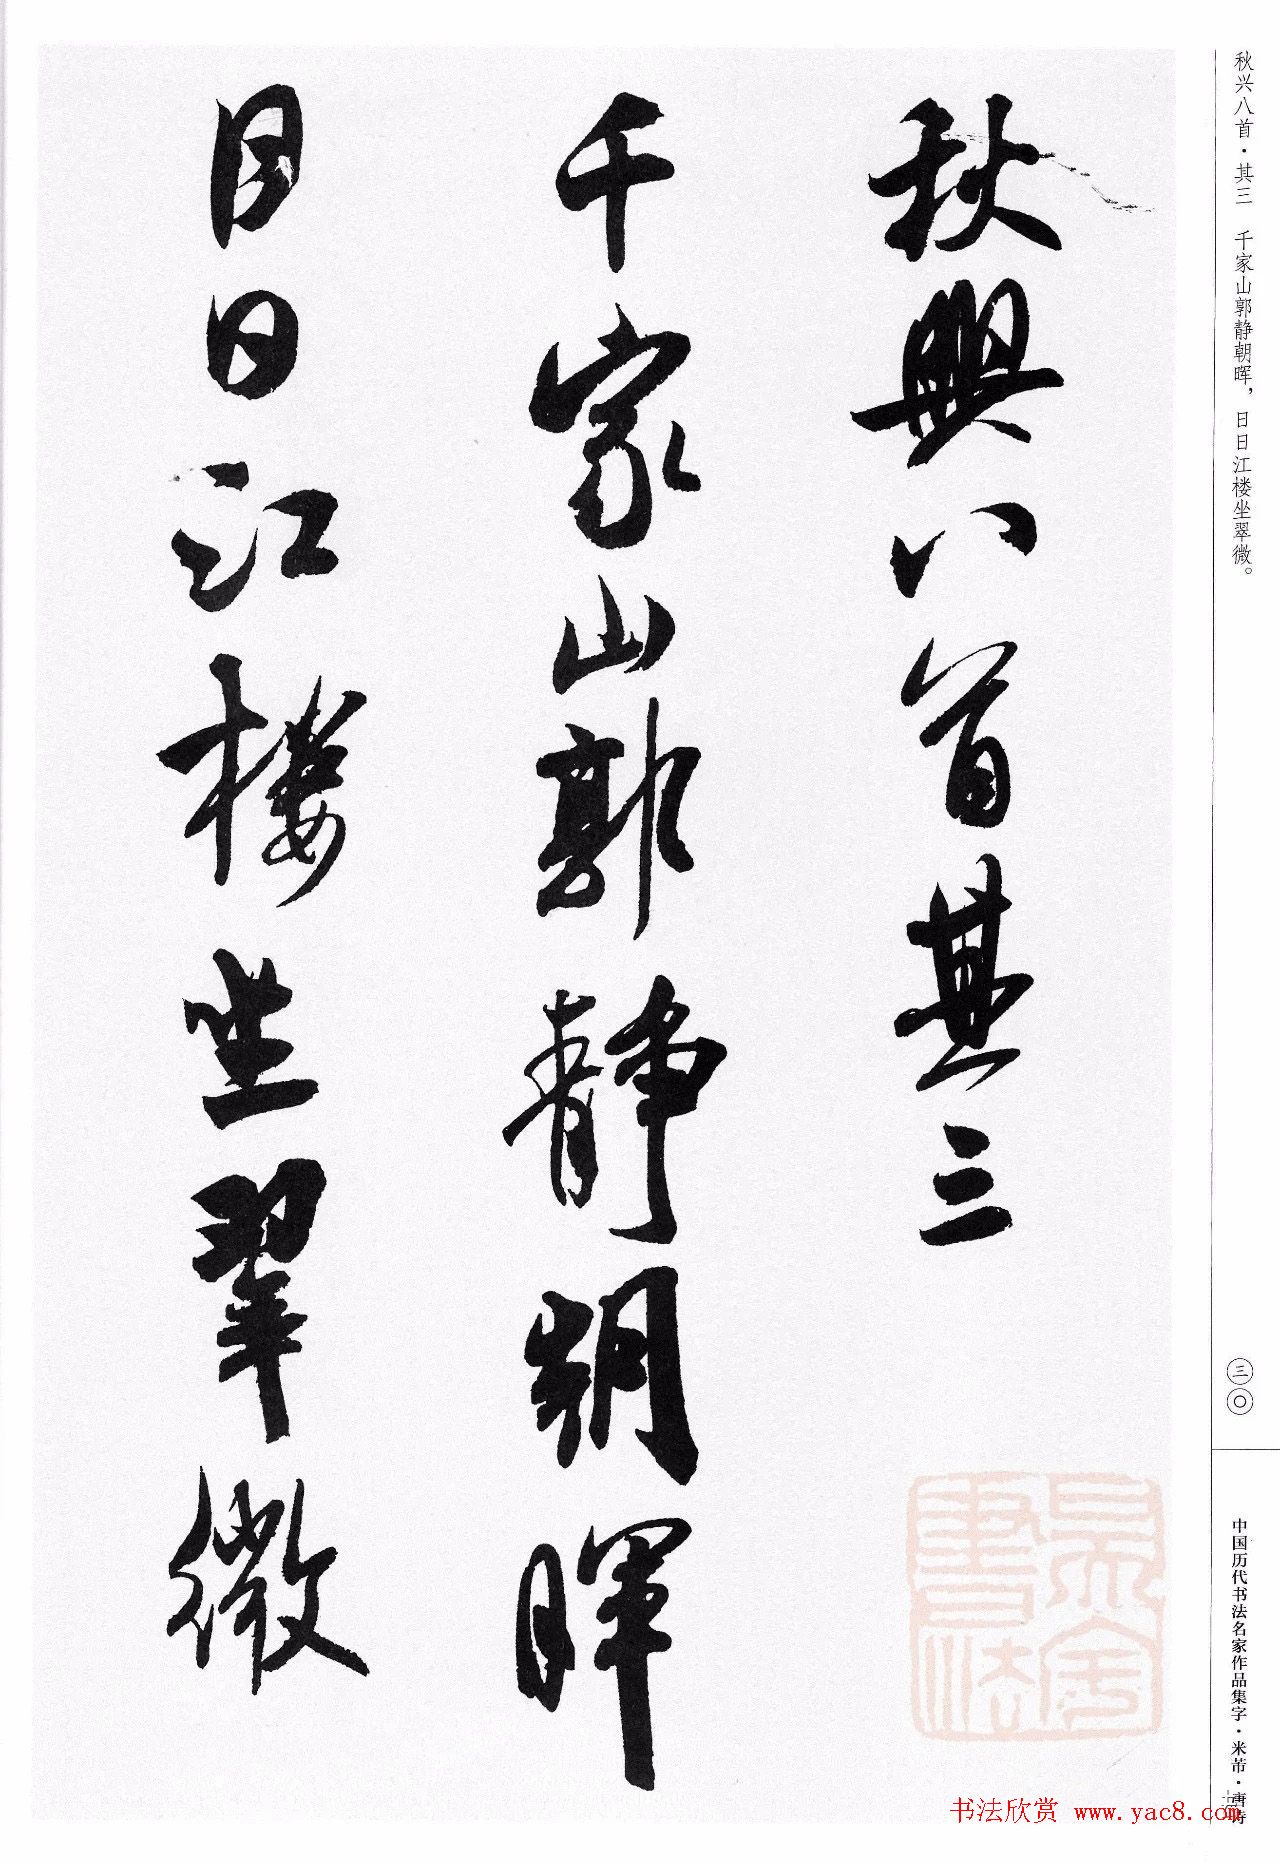 秋兴八首·其三 千家山郭静朝晖，日日江楼坐翠微。
三〇
中国历代书法名家作品集字·米芾·唐诗
秋興八首其三
千家山郭静朝暉
日日江樓坐翠微
书法欣赏 www.yac8.com